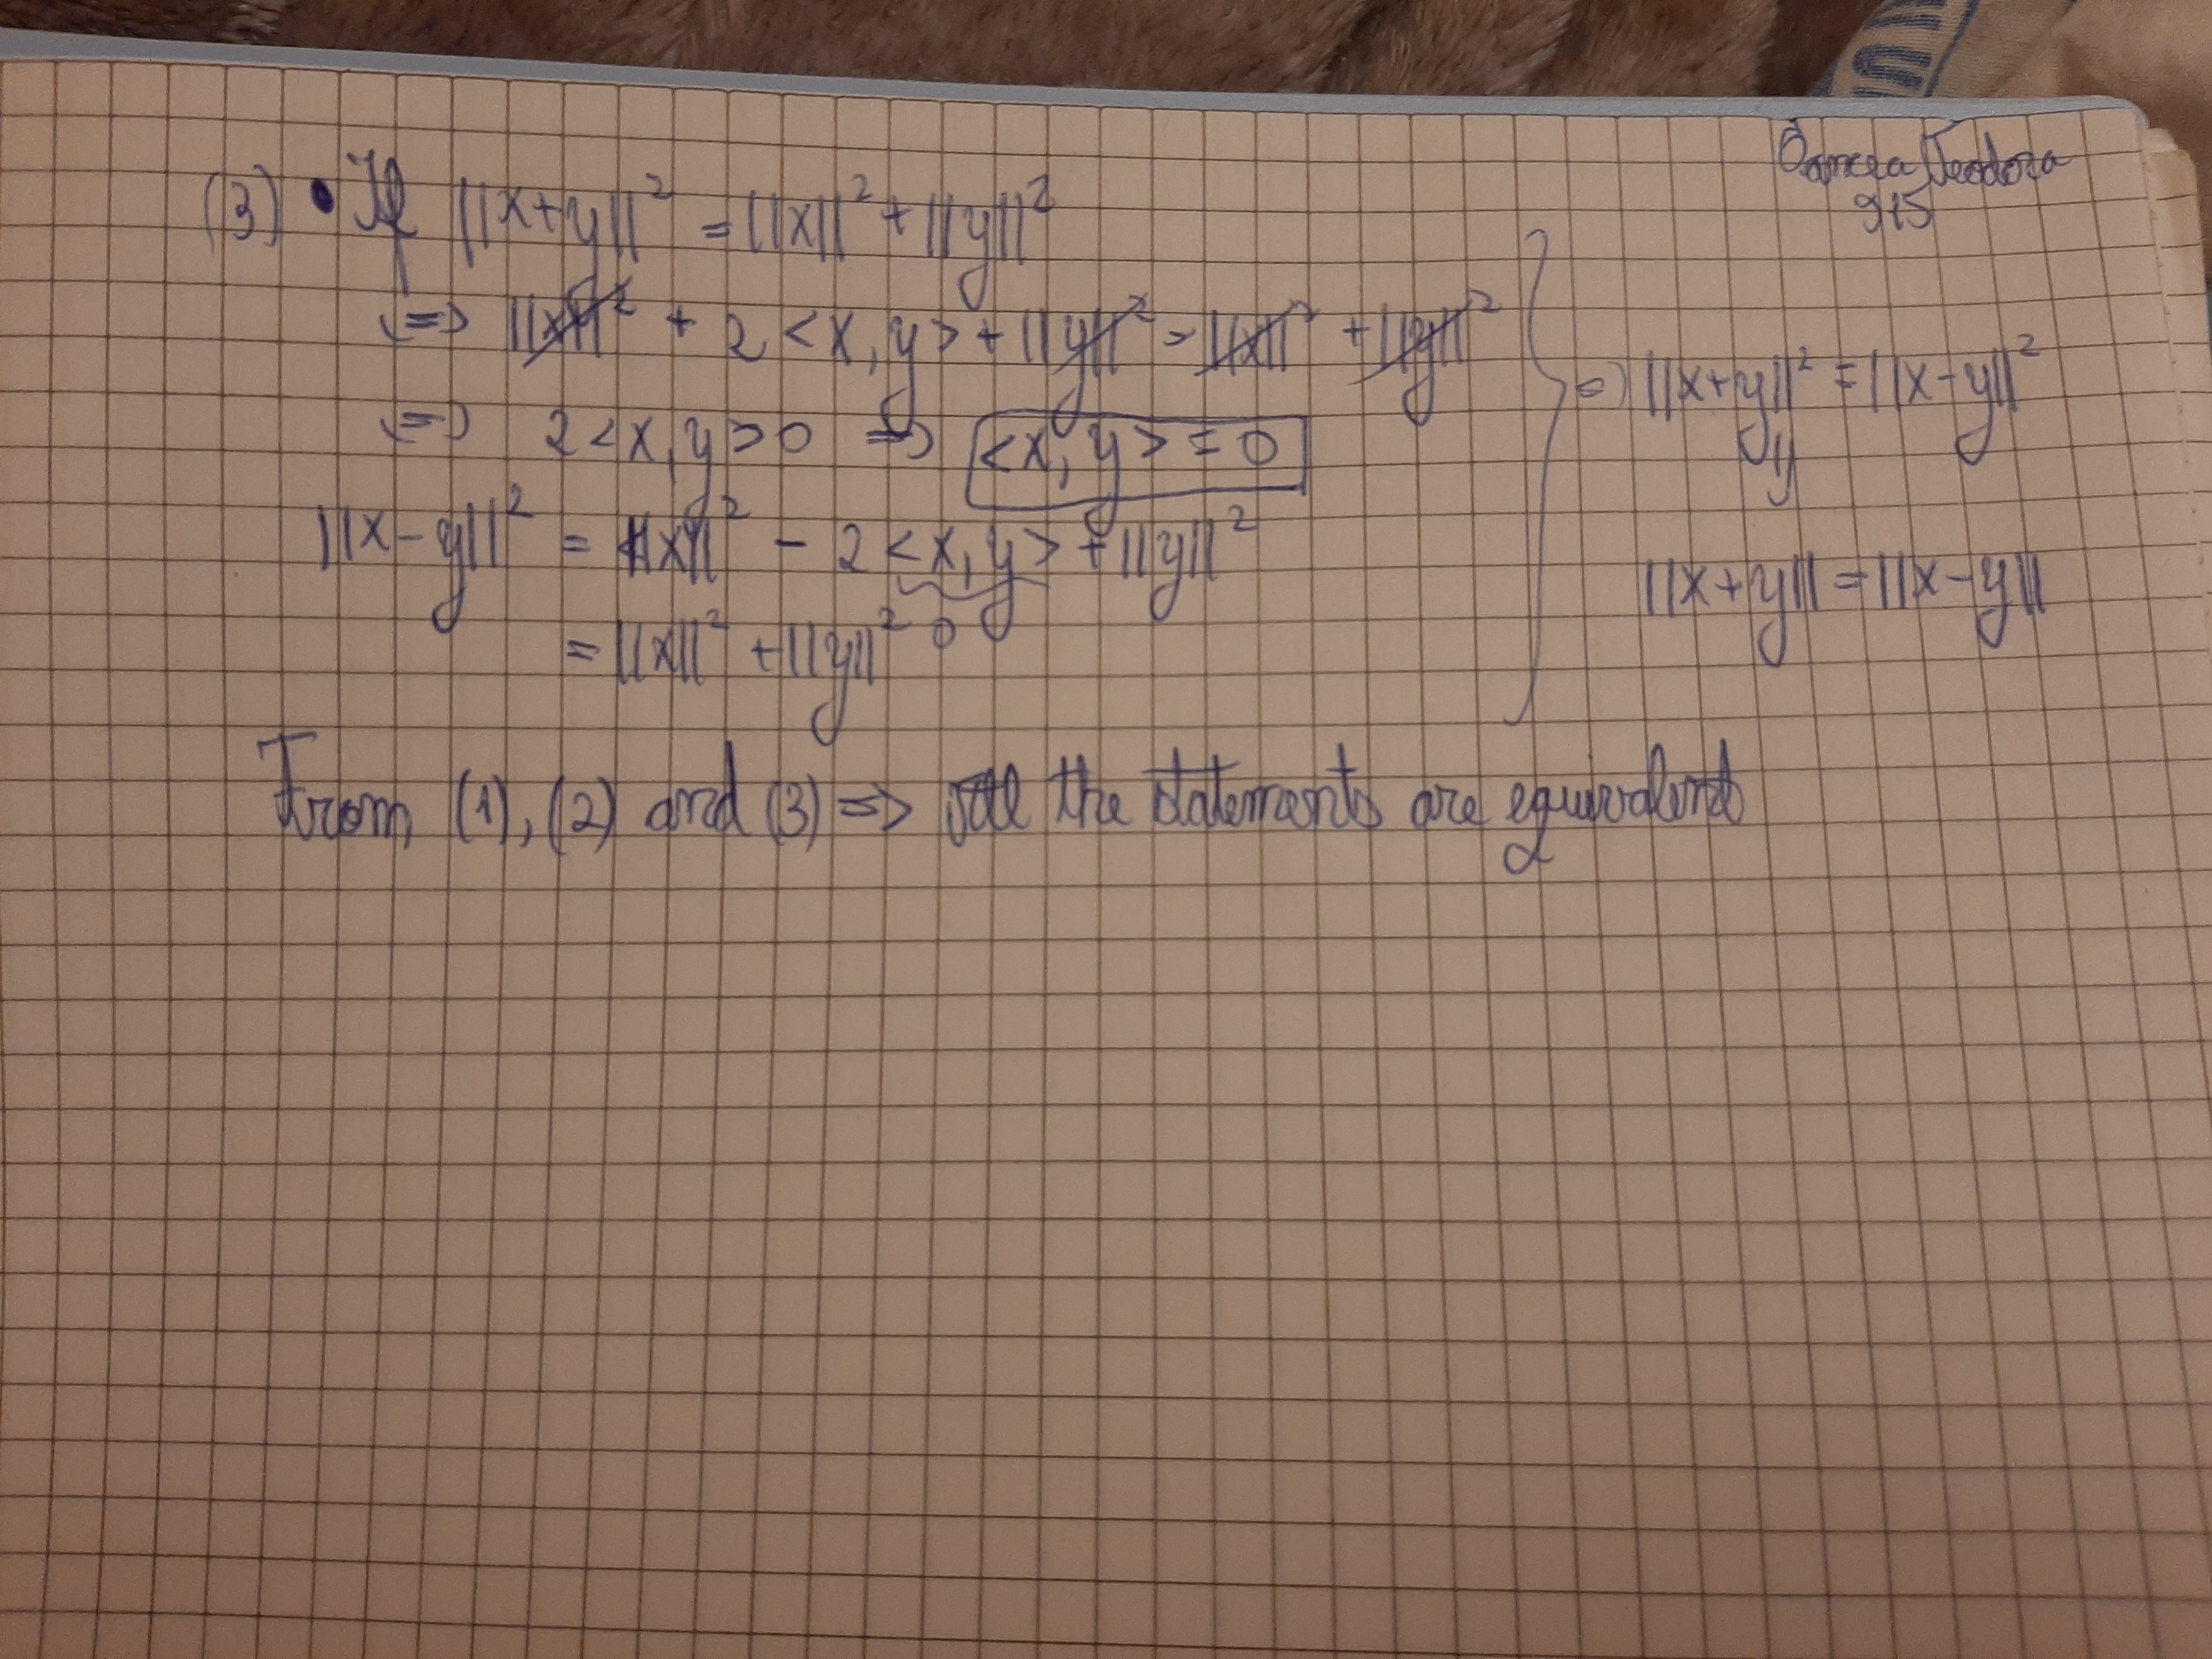 Teodora
915
(3) • If ||x+y||² = ||x||² + ||y||²
<=> ||x||² + 2<x,y> + ||y||² = ||x||² + ||y||²
<=> 2<x,y>0 => <x,y> = 0
||x-y||² = ||x||² - 2<x,y> + ||y||²
0
= ||x||² + ||y||²
=> ||x+y||² = ||x-y||²
⇓
||x+y|| = ||x-y||
From (1), (2) and (3) => all the statements are equivalent